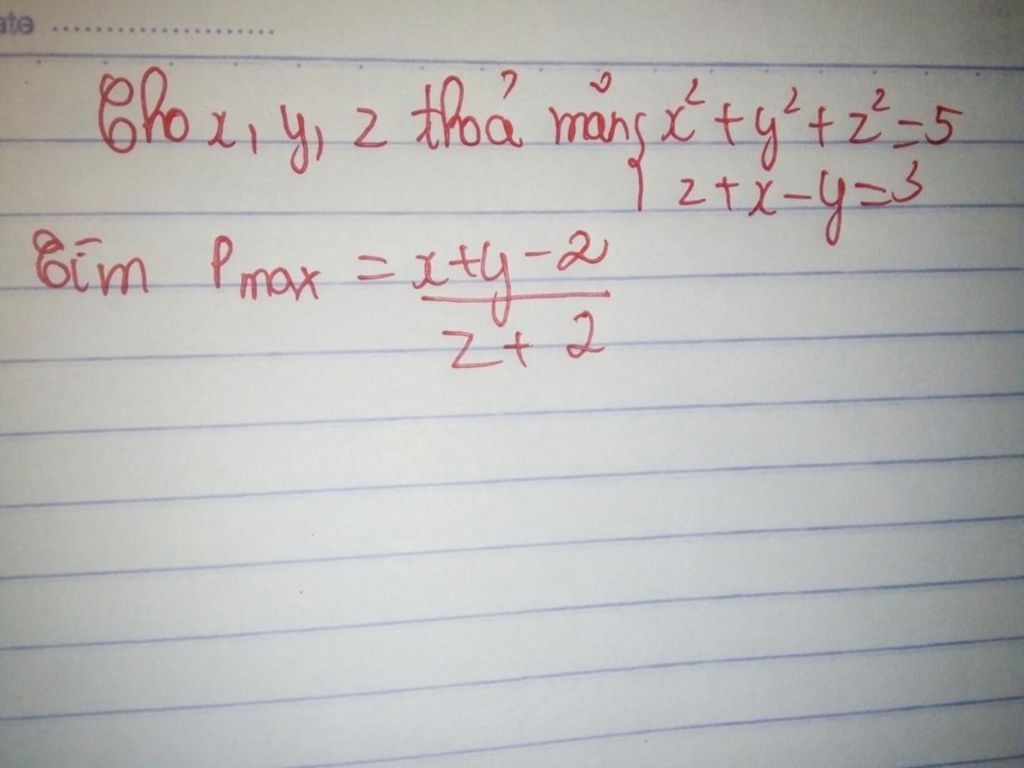 ate ........................
Cho x, y, z thoả mãn { x² + y² + z² = 5
z + x - y = 3
Tìm P max = x+y-2
z + 2